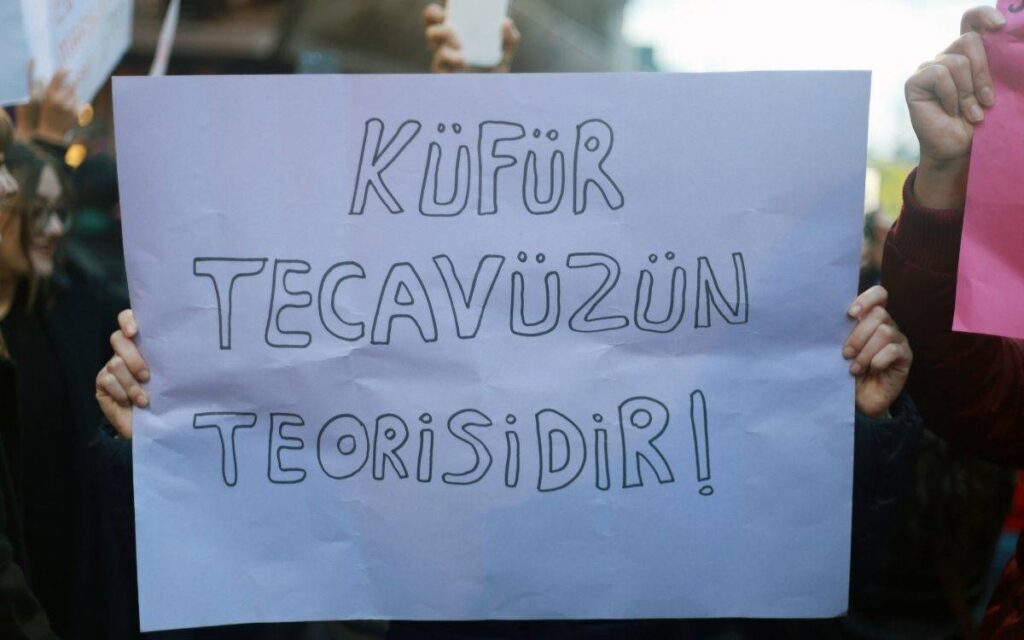 KÜFÜR
TECAVÜZÜN
TEORİSİDİR!